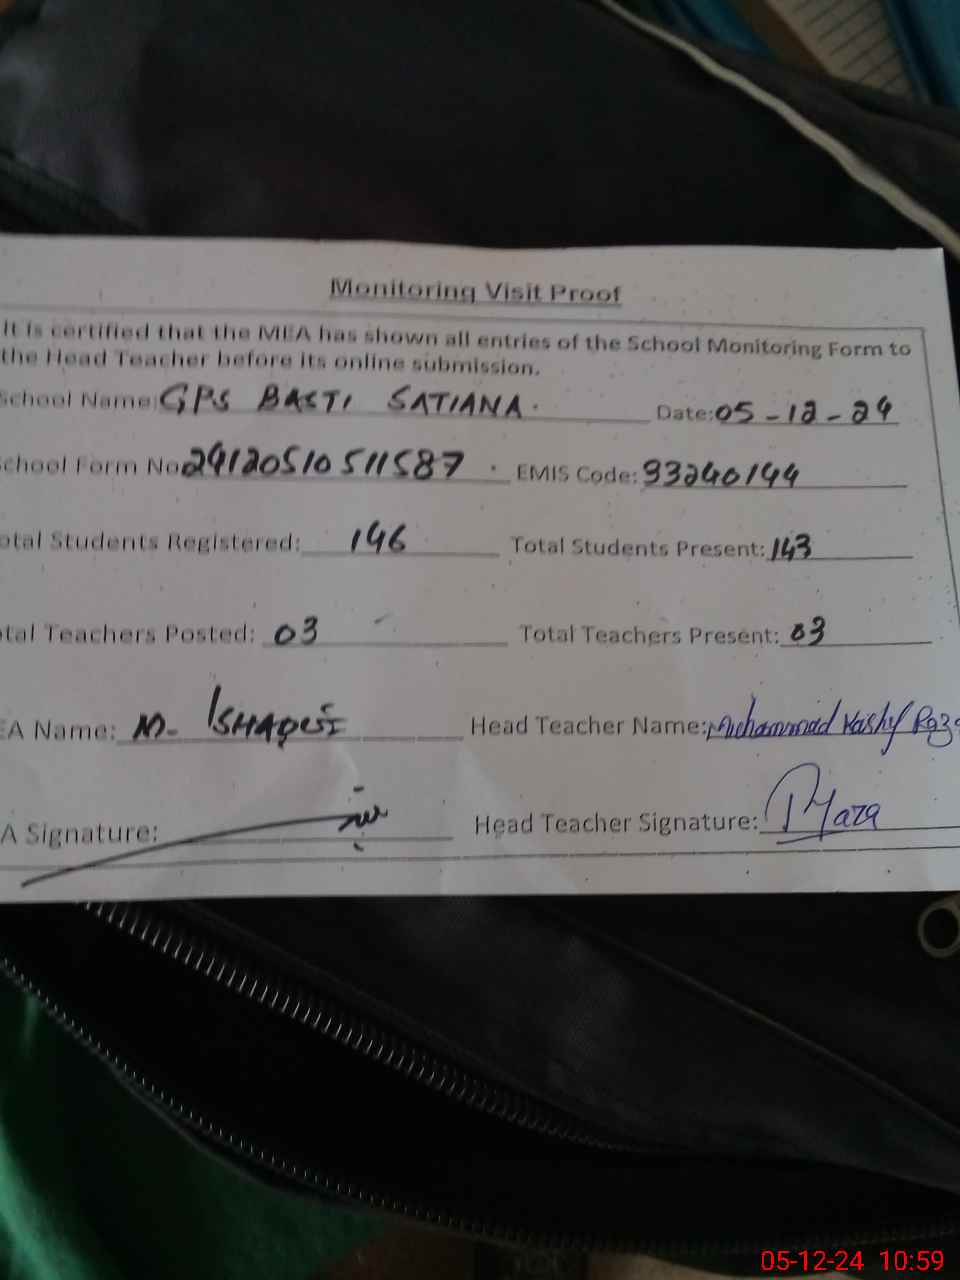 Monitoring Visit Proof
It is certified that the MEA has shown all entries of the School Monitoring Form to
the Head Teacher before its online submission.
School Name: GPS BASTI SATIANA. Date: 05-12-24
School Form No 24120510511587. EMIS Code: 33240144
otal Students Registered: 146 Total Students Present: 143
tal Teachers Posted: 03 Total Teachers Present: 03
EA Name: M. Head Teacher Name: Muhammad Kashif Raza
A Signature: Head Teacher Signature:
05-12-24 10:59